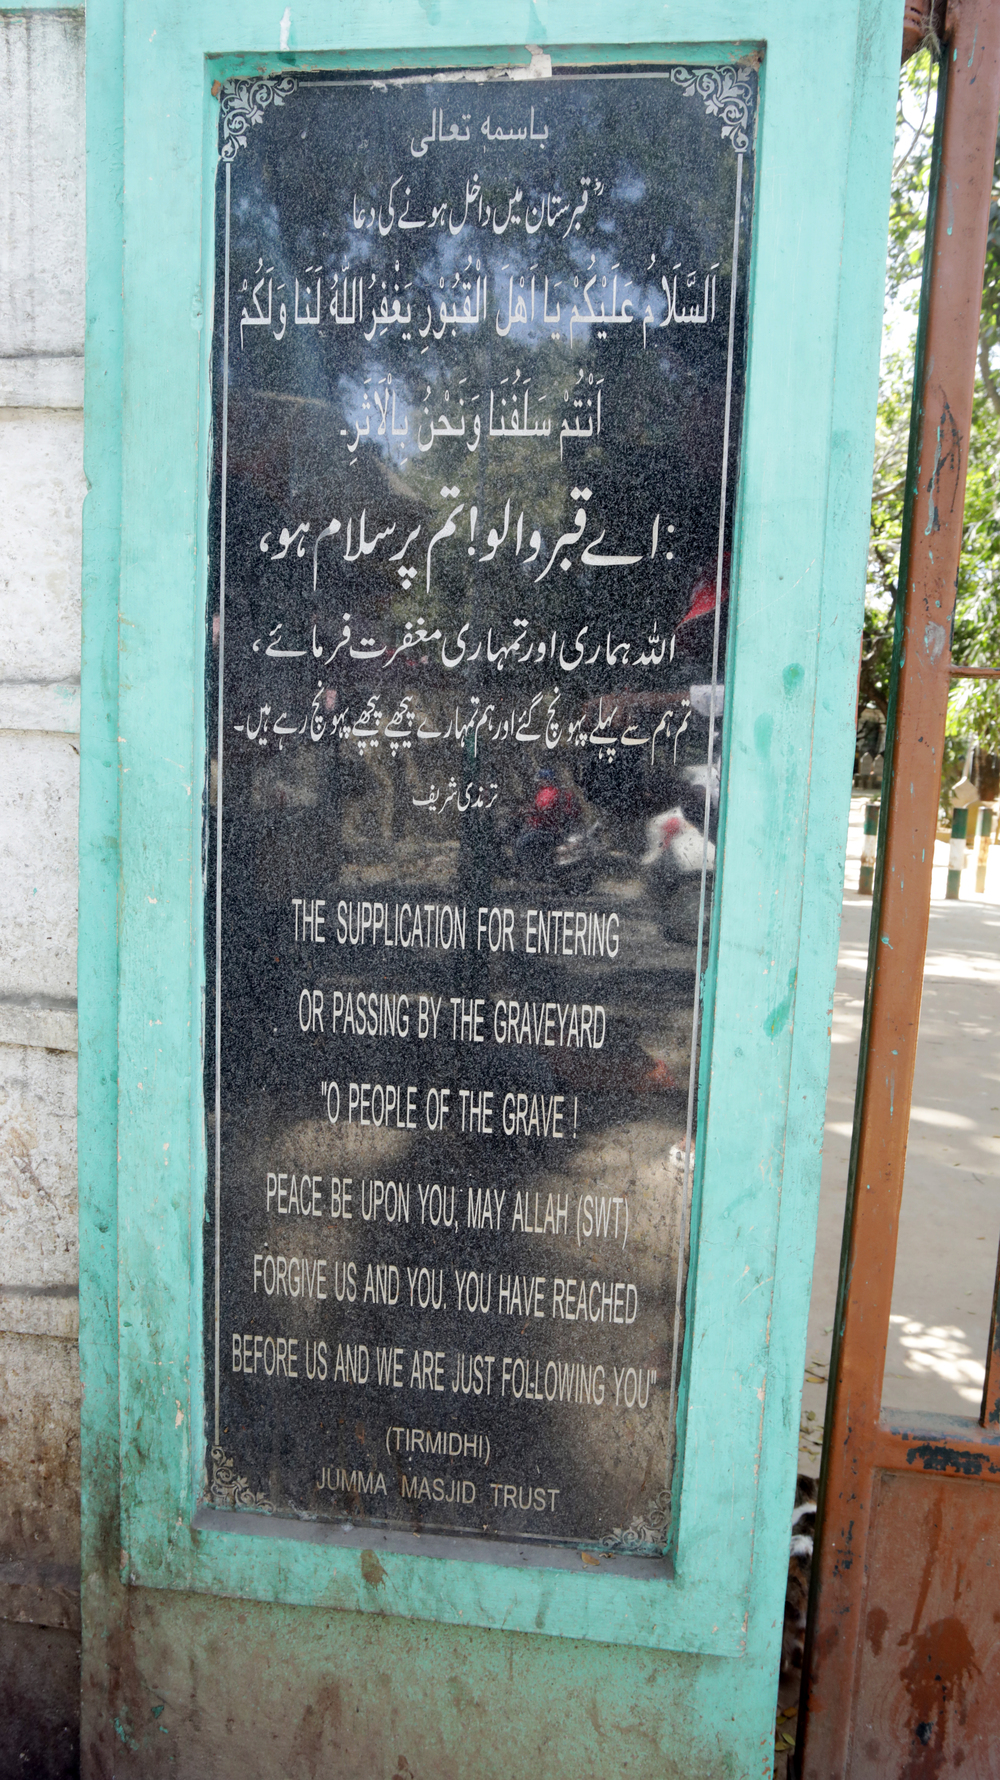 باسمه تعالى
قبرستان میں داخل ہونے کی دعا
اَلسَّلَامُ عَلَيْكُمْ يَا اَهْلَ الْقُبُوْرِ يَغْفِرُ اللّٰهُ لَنَا وَلَكُمْ
اَنْتُمْ سَلَفُنَا وَنَحْنُ بِالْاَثَرِ۔
:اے قبر والو! تم پر سلام ہو،
اللہ ہماری اور تمہاری مغفرت فرمائے،
تم ہم سے پہلے پہونچ گئے اور ہم تمہارے پیچھے پیچھے پہونچ رہے ہیں۔
ترمذی شریف
THE SUPPLICATION FOR ENTERING
OR PASSING BY THE GRAVEYARD
"O PEOPLE OF THE GRAVE !
PEACE BE UPON YOU, MAY ALLAH (SWT)
FORGIVE US AND YOU. YOU HAVE REACHED
BEFORE US AND WE ARE JUST FOLLOWING YOU"
(TIRMIDHI)
JUMMA MASJID TRUST